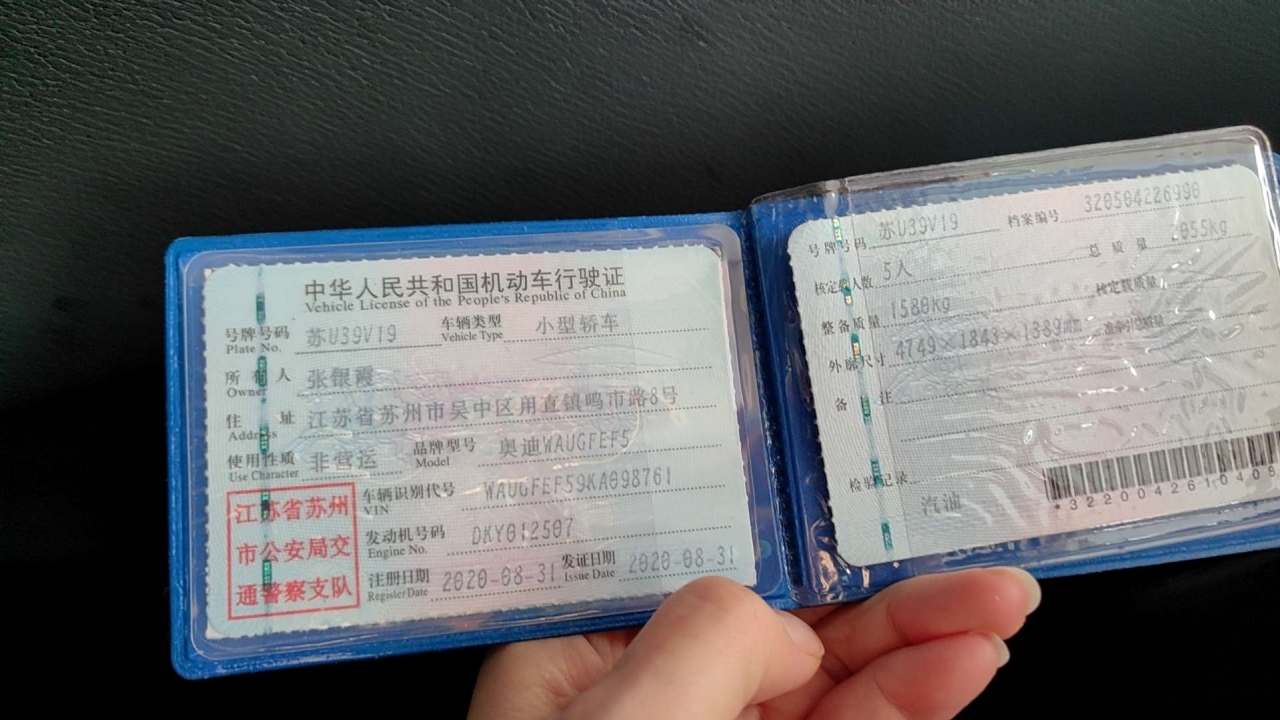 中华人民共和国机动车行驶证
Vehicle License of the People's Republic of China
号牌号码 苏U39V19 车辆类型 小型轿车
Plate No. Vehicle Type
所有人 张银霞
Owner
住址 江苏省苏州市吴中区甪直镇鸣市路8号
Address
使用性质 非营运 品牌型号 奥迪WAUGFEF5
Use Character Model
江苏省苏州
市公安局交
通警察支队
车辆识别代号 WAUGFEF59KA098761
VIN
发动机号码 DKY012507
Engine No.
注册日期 2020-08-31 发证日期 2020-08-31
Register Date Issue Date
号牌号码 苏U39V19 档案编号 320504226990
核定载人数 5人 总质量 2055kg
整备质量 1580kg 核定载质量
外廓尺寸 4749×1843×1389mm 准牵引总质量
备注
检验记录
汽油
*3220042610409